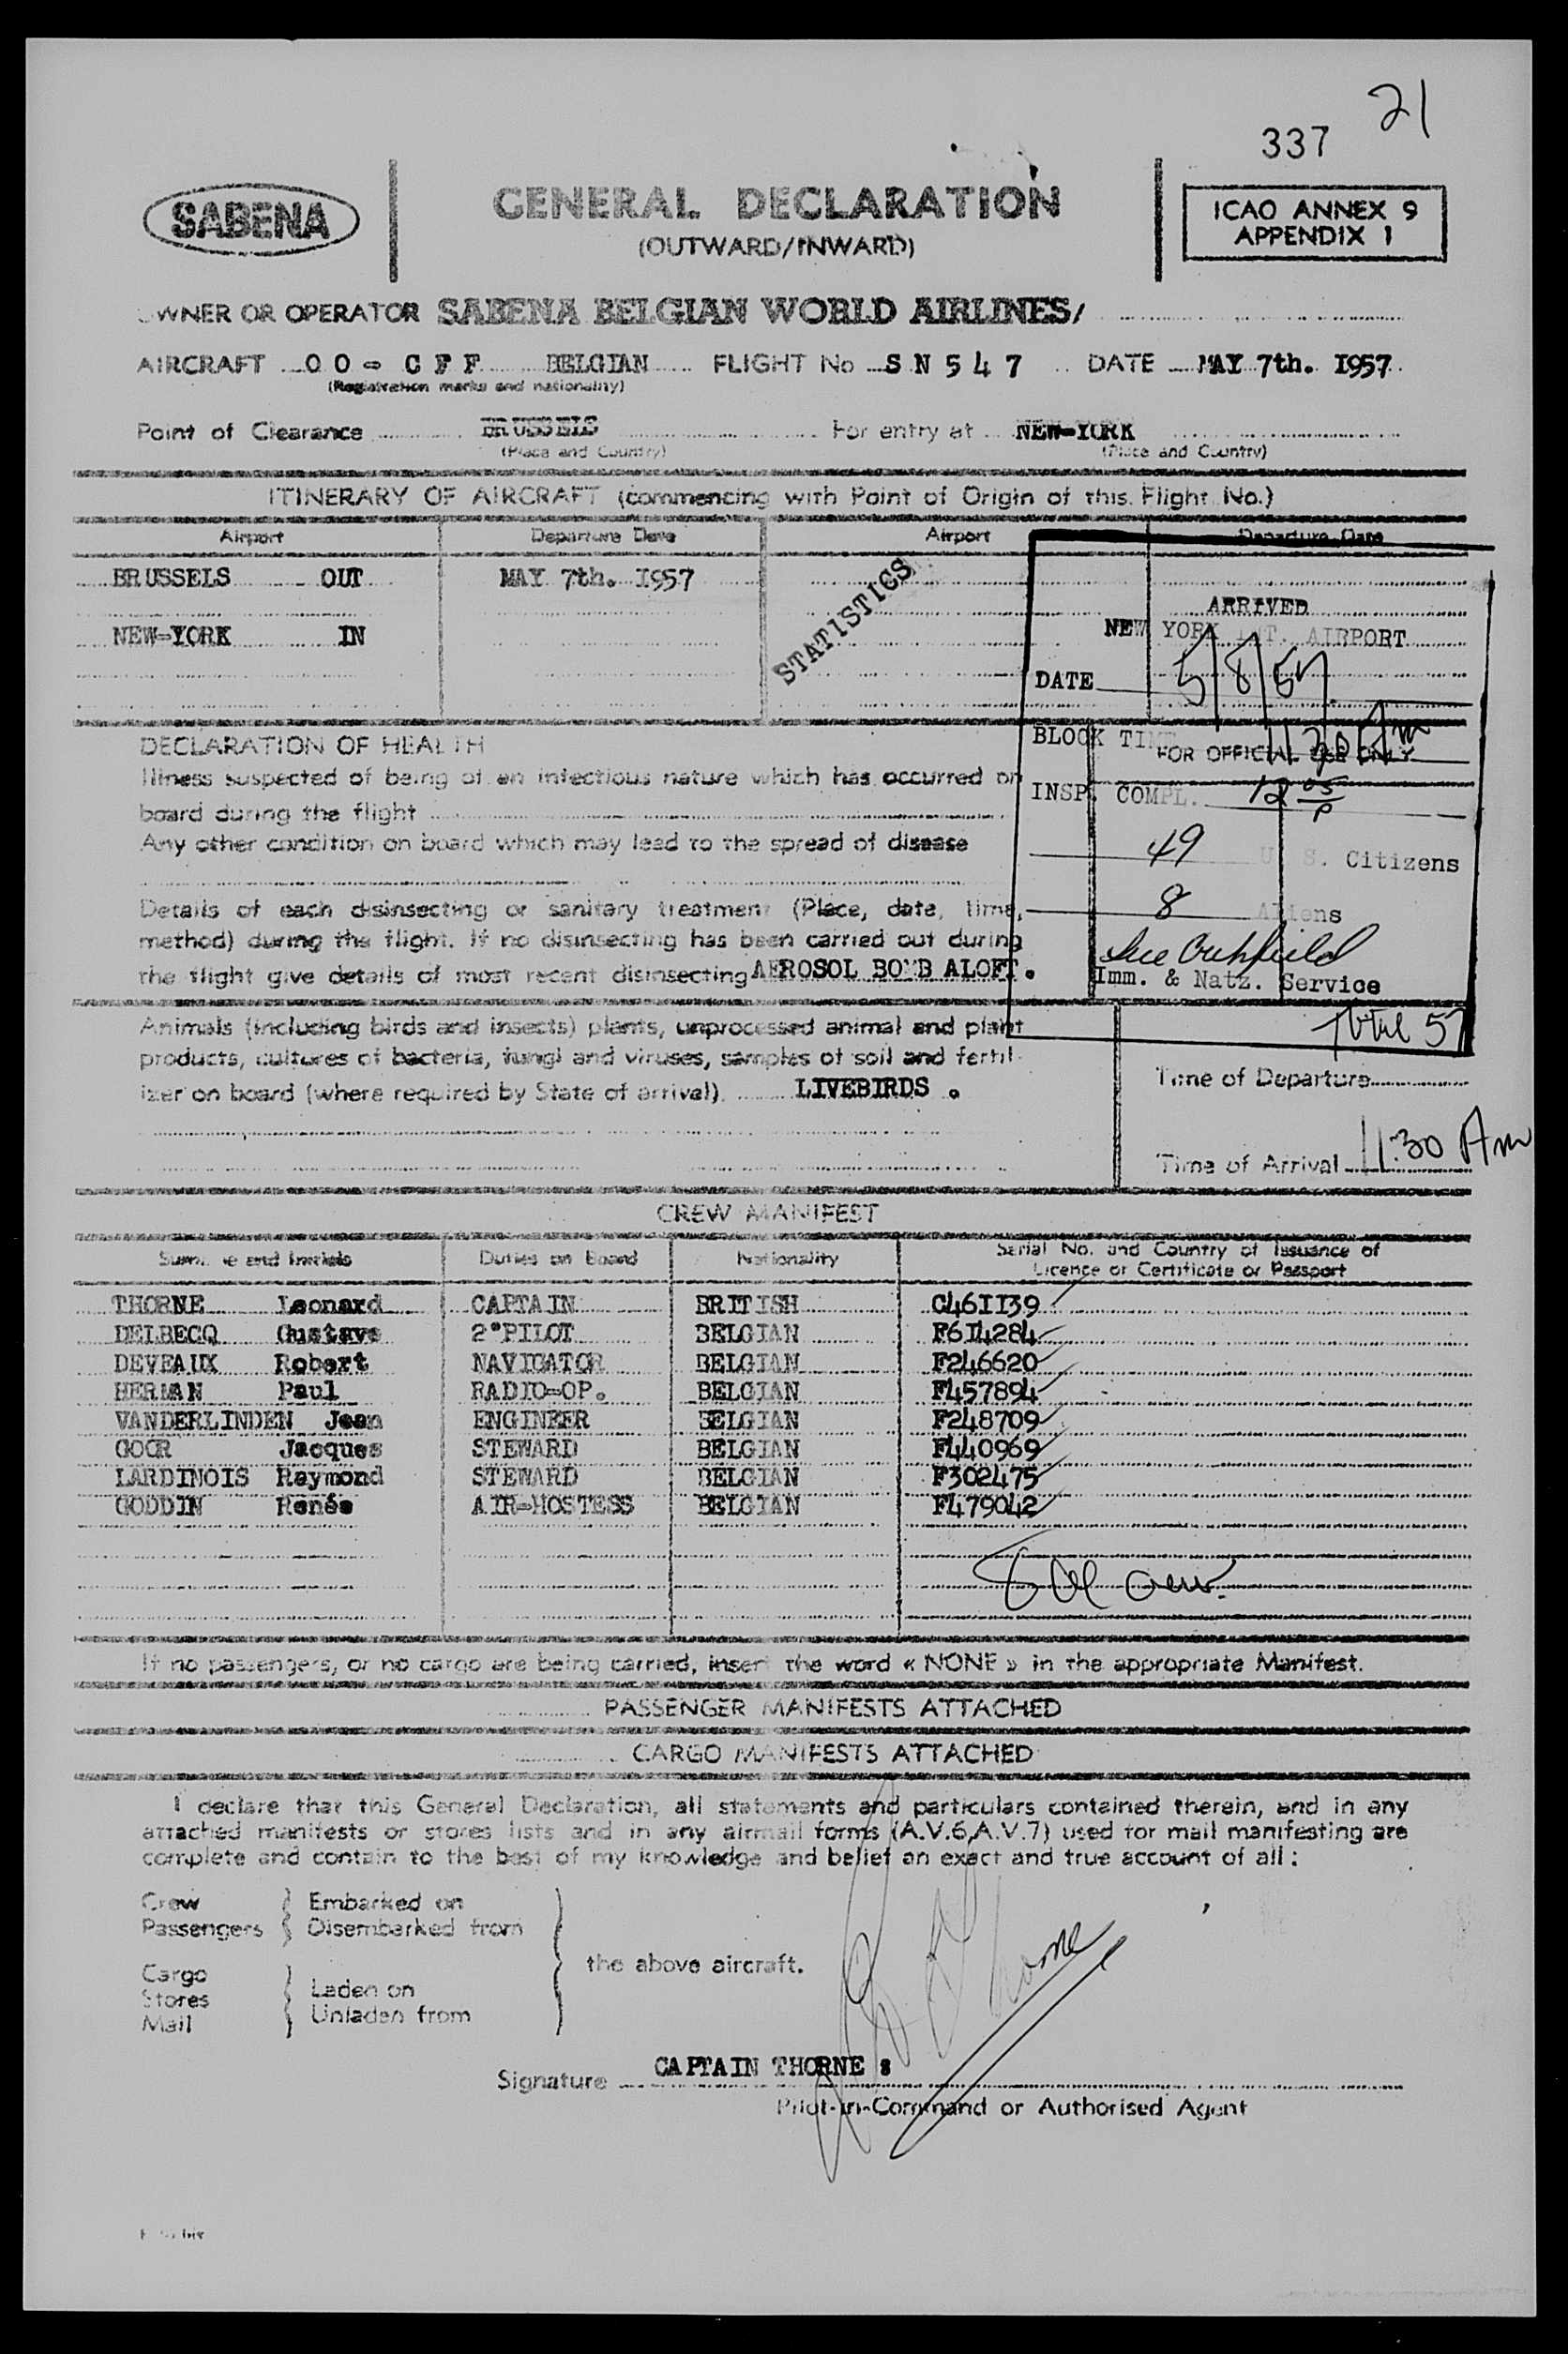 21
337
SABENA
GENERAL DECLARATION
(OUTWARD/INWARD)
ICAO ANNEX 9
APPENDIX 1
WNER OR OPERATOR SABENA BELGIAN WORLD AIRLINES/
AIRCRAFT OO-CFF BELGIAN FLIGHT No SN547 DATE MAY 7th. I957
(Registration marks and nationality)
Point of Clearance BRUSSELS For entry at NEW-YORK
(Place and Country) (Place and Country)
ITINERARY OF AIRCRAFT (commencing with Point of Origin of this Flight No.)
Airport Departure Date Airport Departure Date
BRUSSELS OUT MAY 7th. I957
NEW-YORK IN
STATISTICS
ARRIVED
NEW YORK INT. AIRPORT
DATE 5/8/57
BLOCK TIME 1130 Am
FOR OFFICIAL USE ONLY
INSP. COMPL. 12 05 P
49 U. S. Citizens
8 Aliens
Imm. & Natz. Service
Total 57
DECLARATION OF HEALTH
Illness suspected of being of an infectious nature which has occurred on
board during the flight
Any other condition on board which may lead to the spread of disease
Details of each disinsecting or sanitary treatment (Place, date, time,
method) during the flight. If no disinsecting has been carried out during
the flight give details of most recent disinsecting AEROSOL BOMB ALOFT.
Animals (including birds and insects) plants, unprocessed animal and plant
products, cultures of bacteria, fungi and viruses, samples of soil and fertil-
izer on board (where required by State of arrival) LIVEBIRDS .
Time of Departure
Time of Arrival 11:30 Am
CREW MANIFEST
Surname and Initials Duties on Board Nationality Serial No. and Country of Issuance of
Licence or Certificate or Passport
THORNE Leonard CAPTAIN BRITISH C46II39
DELBECQ Gustave 2°PILOT BELGIAN F6I4284
DEVEAUX Robert NAVIGATOR BELGIAN F246620
HERMAN Paul RADIO-OP. BELGIAN F457894
VANDERLINDEN Jean ENGINEER BELGIAN F248709
GOOR Jacques STEWARD BELGIAN F440969
LARDINOIS Raymond STEWARD BELGIAN F302475
GODDIN Renée AIR-HOSTESS BELGIAN F479042
If no passengers, or no cargo are being carried, insert the word « NONE » in the appropriate Manifest.
PASSENGER MANIFESTS ATTACHED
CARGO MANIFESTS ATTACHED
I declare that this General Declaration, all statements and particulars contained therein, and in any
attached manifests or stores lists and in any airmail forms (A.V.6,A.V.7) used for mail manifesting are
complete and contain to the best of my knowledge and belief an exact and true account of all :
Crew Embarked on
Passengers Disembarked from
the above aircraft.
Cargo
Stores Laden on
Mail Unladen from
Thorne
Signature CAPTAIN THORNE :
Pilot-in-Command or Authorised Agent